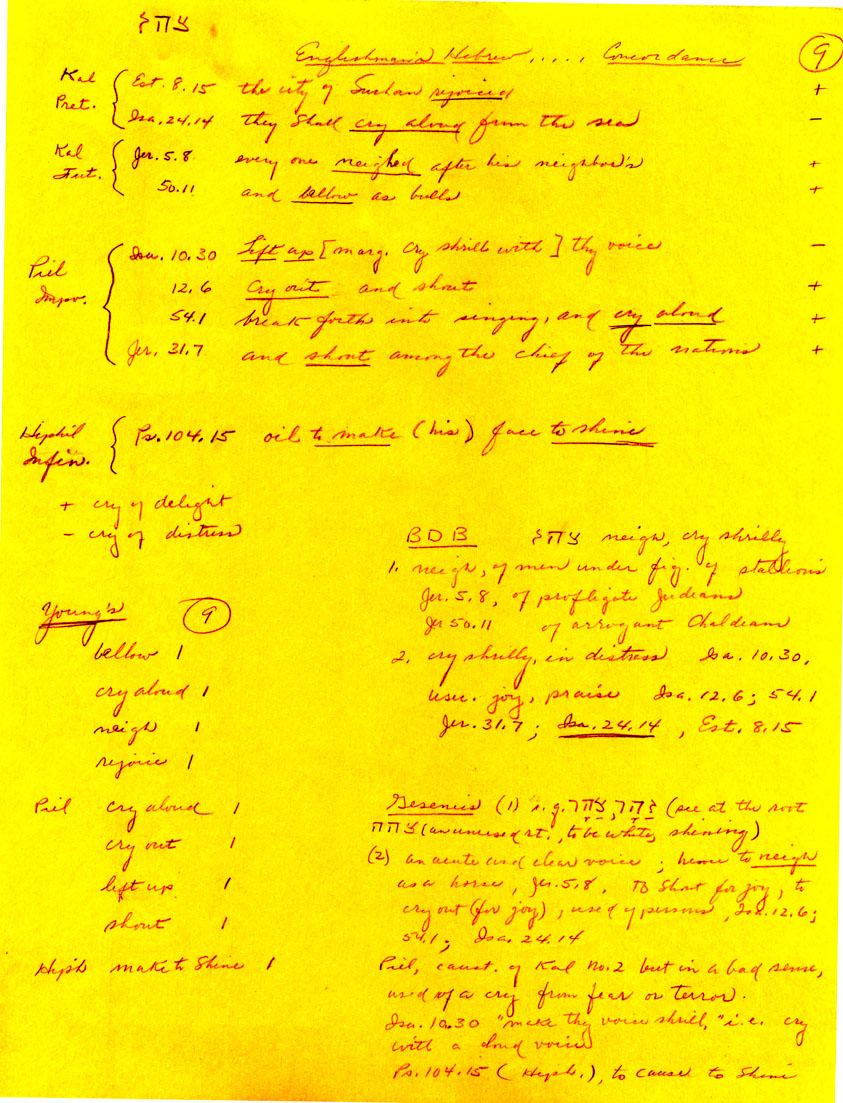 צהל
Englishman's Hebrew ..... Concordance 9
Kal Pret. Est. 8.15 the city of Sushan rejoiced +
Isa. 24.14 they shall cry aloud from the sea –
Kal Fut. Jer. 5.8 every one neighed after his neighbor's +
50.11 and bellow as bulls +
Piel Impv. Isa. 10.30 Lift up [marg. Cry shrill with] thy voice –
12.6 Cry out and shout +
54.1 break forth into singing, and cry aloud +
Jer. 31.7 and shout among the chief of the nations +
Hiphil Infin. Ps. 104.15 oil to make (his) face to shine
+ cry of delight
– cry of distress
Young's 9
bellow 1
cry aloud 1
neigh 1
rejoice 1
Piel cry aloud 1
cry out 1
lift up 1
shout 1
Hiph make to Shine 1
BDB צהל neigh, cry shrilly
1. neigh, of men under fig. of stallions
Jer. 5.8, of profligate Judeans
Jer 50.11 of arrogant Chaldeans
2. cry shrilly, in distress Isa. 10.30,
usu. joy, praise Isa. 12.6; 54.1
Jer. 31.7; Isa. 24.14, Est. 8.15
Gesenius (1) i.q. צהר, זהר (see at the root
צחח (an unused rt., to be white, shining)
(2) an acute and clear voice; hence to neigh
as a horse, Jer. 5.8. To Shout for joy, to
cry out (for joy), used of persons, Isa. 12.6;
54.1; Isa. 24.14
Piel, caust. of Kal no. 2 but in a bad sense,
used of a cry from fear or terror.
Isa. 10.30 "make thy voice shrill," i.e. cry
with a loud voice
Ps. 104.15 (Hiph.), to cause to Shine